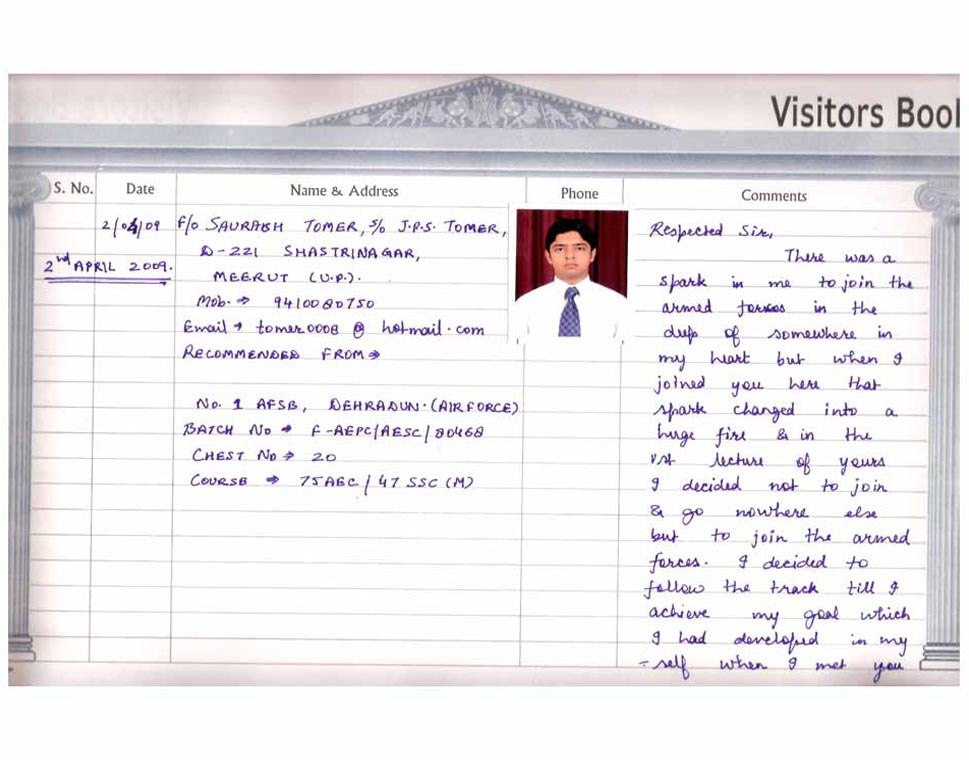 Visitors Boo
S. No.
Date
Name & Address
Phone
Comments
2/04/09
2nd APRIL 2009.
F/O SAURABH TOMER, S/o J.P.S. TOMER,
D-221 SHASTRINAGAR,
MEERUT (U.P.).
Mob. → 9410080750
Email → tomer0008 @ hotmail.com
RECOMMENDED FROM →
No. 1 AFSB, DEHRADUN. (AIRFORCE)
BATCH No → F-AEPC/AESC/80468
CHEST No → 20
COURSE → 75AEC/47 SSC (M)
Respected Sir,
There was a
spark in me to join the
armed forces in the
deep of somewhere in
my heart but when I
joined you here that
spark changed into a
huge fire & in the
1st lecture of yours
I decided not to join
& go nowhere else
but to join the armed
forces. I decided to
follow the track till I
achieve my goal which
I had developed in my
-self when I met you